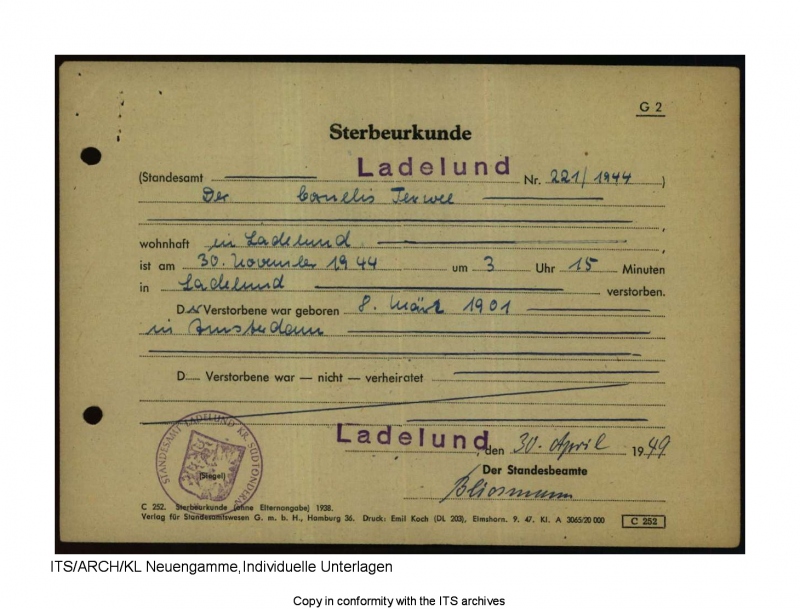 G 2
Sterbeurkunde
(Standesamt Ladelund Nr. 221/1944)
Der Cornelis Terwee
wohnhaft in Ladelund
ist am 30. November 1944 um 3 Uhr 15 Minuten
in Ladelund verstorben.
Der Verstorbene war geboren 8. März 1901
in Amsterdam
D.... Verstorbene war — nicht — verheiratet
Ladelund, den 30. April 1949
STANDESAMT LADELUND KR. SÜDTONDERN
(Siegel)
Der Standesbeamte
C 252. Sterbeurkunde (ohne Elternangabe) 1938.
Verlag für Standesamtswesen G. m. b. H., Hamburg 36. Druck: Emil Koch (DL 203), Elmshorn. 9. 47. Kl. A 3065/20 000 C 252
ITS/ARCH/KL Neuengamme, Individuelle Unterlagen
Copy in conformity with the ITS archives